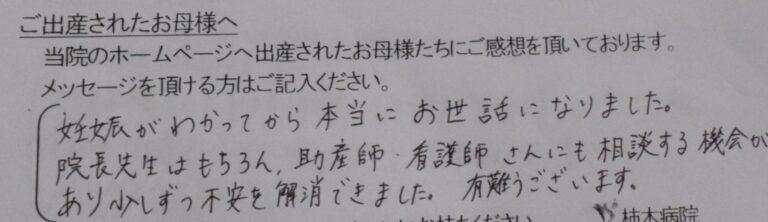 ご出産されたお母様へ
当院のホームページへ出産されたお母様たちにご感想を頂いております。
メッセージを頂ける方はご記入ください。
妊娠がわかってから本当にお世話になりました。
院長先生はもちろん、助産師・看護師さんにも相談する機会が
あり少しずつ不安を解消できました。有難うございます。
お持ちください
柿木病院